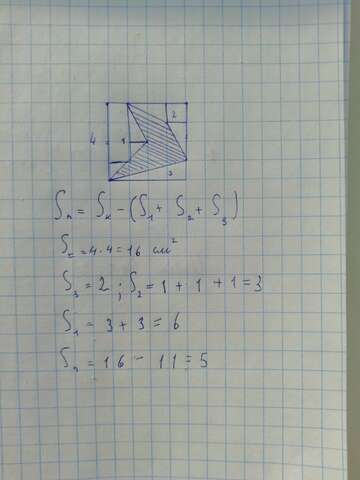 2
4
1
3
Sп = Sк - (S1 + S2 + S3)
Sк = 4 · 4 = 16 см²
S3 = 2 ; S2 = 1 + 1 + 1 = 3
S1 = 3 + 3 = 6
Sп = 16 - 11 = 5